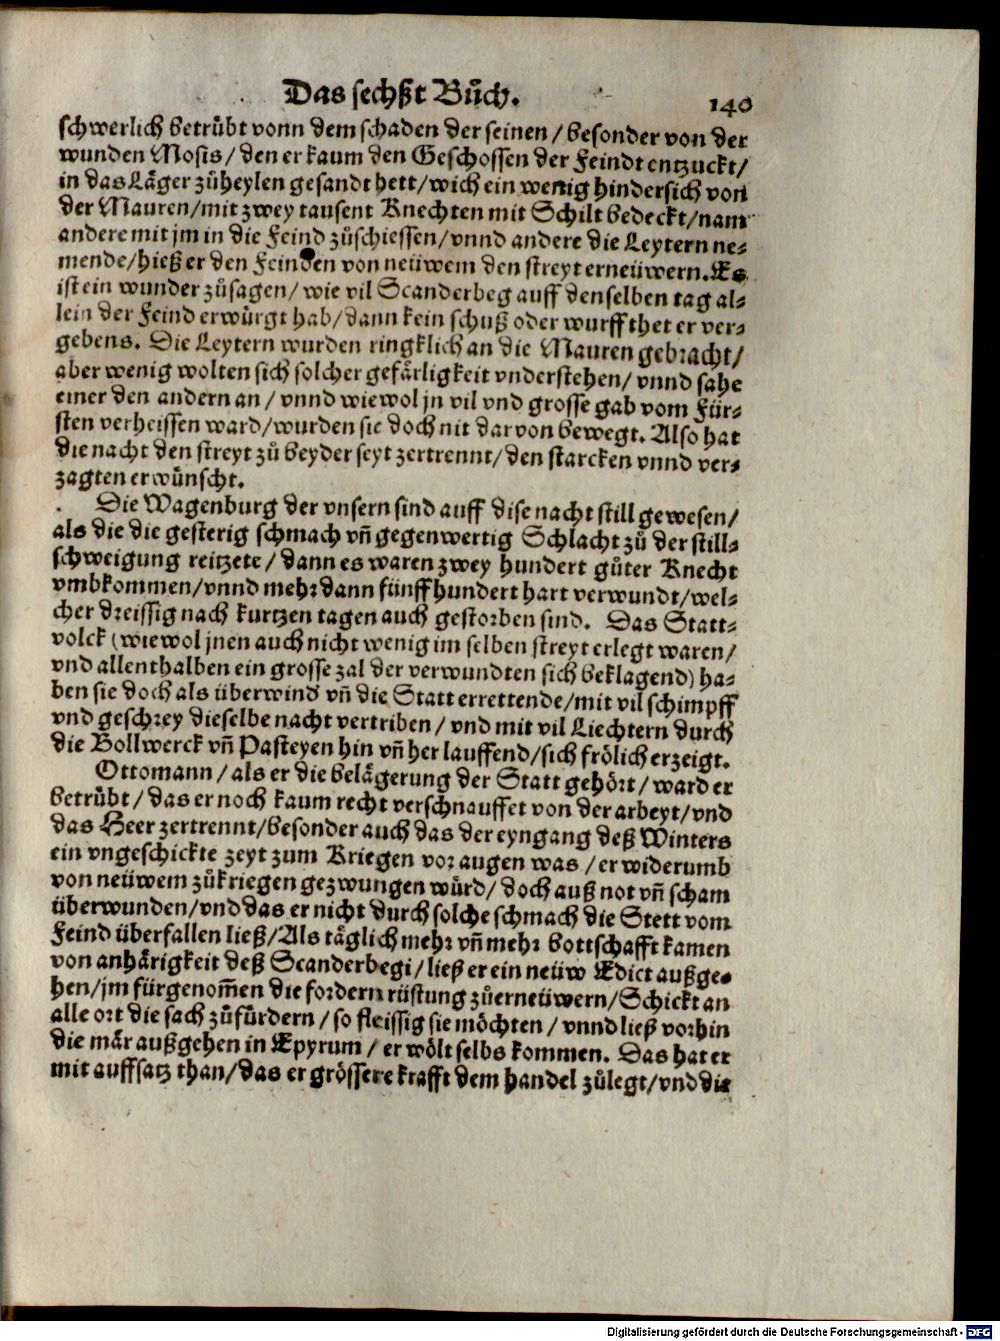 Das sechßt Bůch.
140
schwerlich betrůbt vonn dem schaden der seinen / besonder von der
wunden Mosis / den er kaum den Geschossen der Feindt entzuckt /
in das Läger zůheylen gesandt hett / wich ein wenig hindersich von
der Mauren / mit zwey tausent Knechten mit Schilt bedeckt / nam
andere mit jm in die Feind zůschiessen / vnnd andere die Leytern ne⸗
mende / hieß er den Feinden von neüwem den streyt erneüwern. Es
ist ein wunder zůsagen / wie vil Scanderbeg auff denselben tag al⸗
lein der Feind erwürgt hab / dann kein schuß oder wurff thet er ver⸗
gebens. Die Leytern wurden ringklich an die Mauren gebracht /
aber wenig wolten sich solcher gefärligkeit vnderstehen / vnnd sahe
einer den andern an / vnnd wiewol jn vil vnd grosse gab vom Für⸗
sten verheissen ward / wurden sie doch nit darvon bewegt. Also hat
die nacht den streyt zů beyder seyt zertrennt / den starcken vnnd ver⸗
zagten erwünscht.
Die Wagenburg der vnsern sind auff dise nacht still gewesen /
als die die gesterig schmach vñ gegenwertig Schlacht zů der still⸗
schweigung reitzete / dann es waren zwey hundert gůter Knecht
vmbkommen / vnnd mehr dann fünffhundert hart verwundt / wel⸗
cher dreissig nach kurtzen tagen auch gestorben sind. Das Statt⸗
volck (wiewol jnen auch nicht wenig im selben streyt erlegt waren /
vnd allenthalben ein grosse zal der verwundten sich beklagend) ha⸗
ben sie doch als überwind vñ die Statt errettende / mit vil schimpff
vnd geschrey dieselbe nacht vertriben / vnd mit vil Liechtern durch
die Bollwerck vñ Pasteyen hin vñ her lauffend / sich frölich erzeigt.
Ottomann / als er die belägerung der Statt gehört / ward er
betrůbt / das er noch kaum recht verschnauffet von der arbeyt / vnd
das Heer zertrennt / besonder auch das der eyngang deß Winters
ein vngeschickte zeyt zum Kriegen vor augen was / er widerumb
von neüwem zůkriegen gezwungen würd / doch auß not vñ scham
überwunden / vnd das er nicht durch solche schmach die Stett vom
Feind überfallen ließ / Als täglich mehr vñ mehr bottschafft kamen
von anhärigkeit deß Scanderbegi / ließ er ein neüw Edict außge⸗
hen / jm fürgenom̃en die fordern rüstung zůerneüwern / Schickt an
alle ort die sach zůfürdern / so fleissig sie möchten / vnnd ließ vorhin
die mär außgehen in Epyrum / er wölt selbs kommen. Das hat er
mit auffsatz than / das er grössere krafft dem handel zůlegt / vnd die
Digitalisierung gefördert durch die Deutsche Forschungsgemeinschaft - DFG